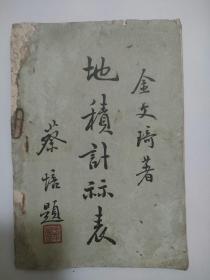 金文琦著
地積計祘表
蔡培題